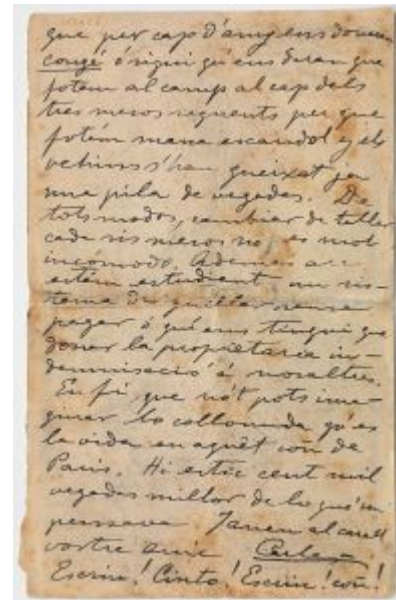 que per cap d'any ens donen
congé ó sigui qu'ens diran que
fotem al camp al cap dels
tres mesos seguents per que
fotém massa escandol y els
vehins s'han queixat ja
una pila de vegades. De
tots modos, cambiar de taller
cada sis mesos no es molt
incómodo. Ademés
estém estudiant un sis-
tema de guillar sense
pagar ó qu'ens tingui que
donar la propietaria in-
demnisació á nosaltres.
En fi, que no't pots ima-
ginar la collonada qu'es
la vida en aquêt con de
Paris. Hi estic cent mil
vegades millor de lo que'm
pensava
vostre amic Carles
Escriu! Cinto! Escriu! con!